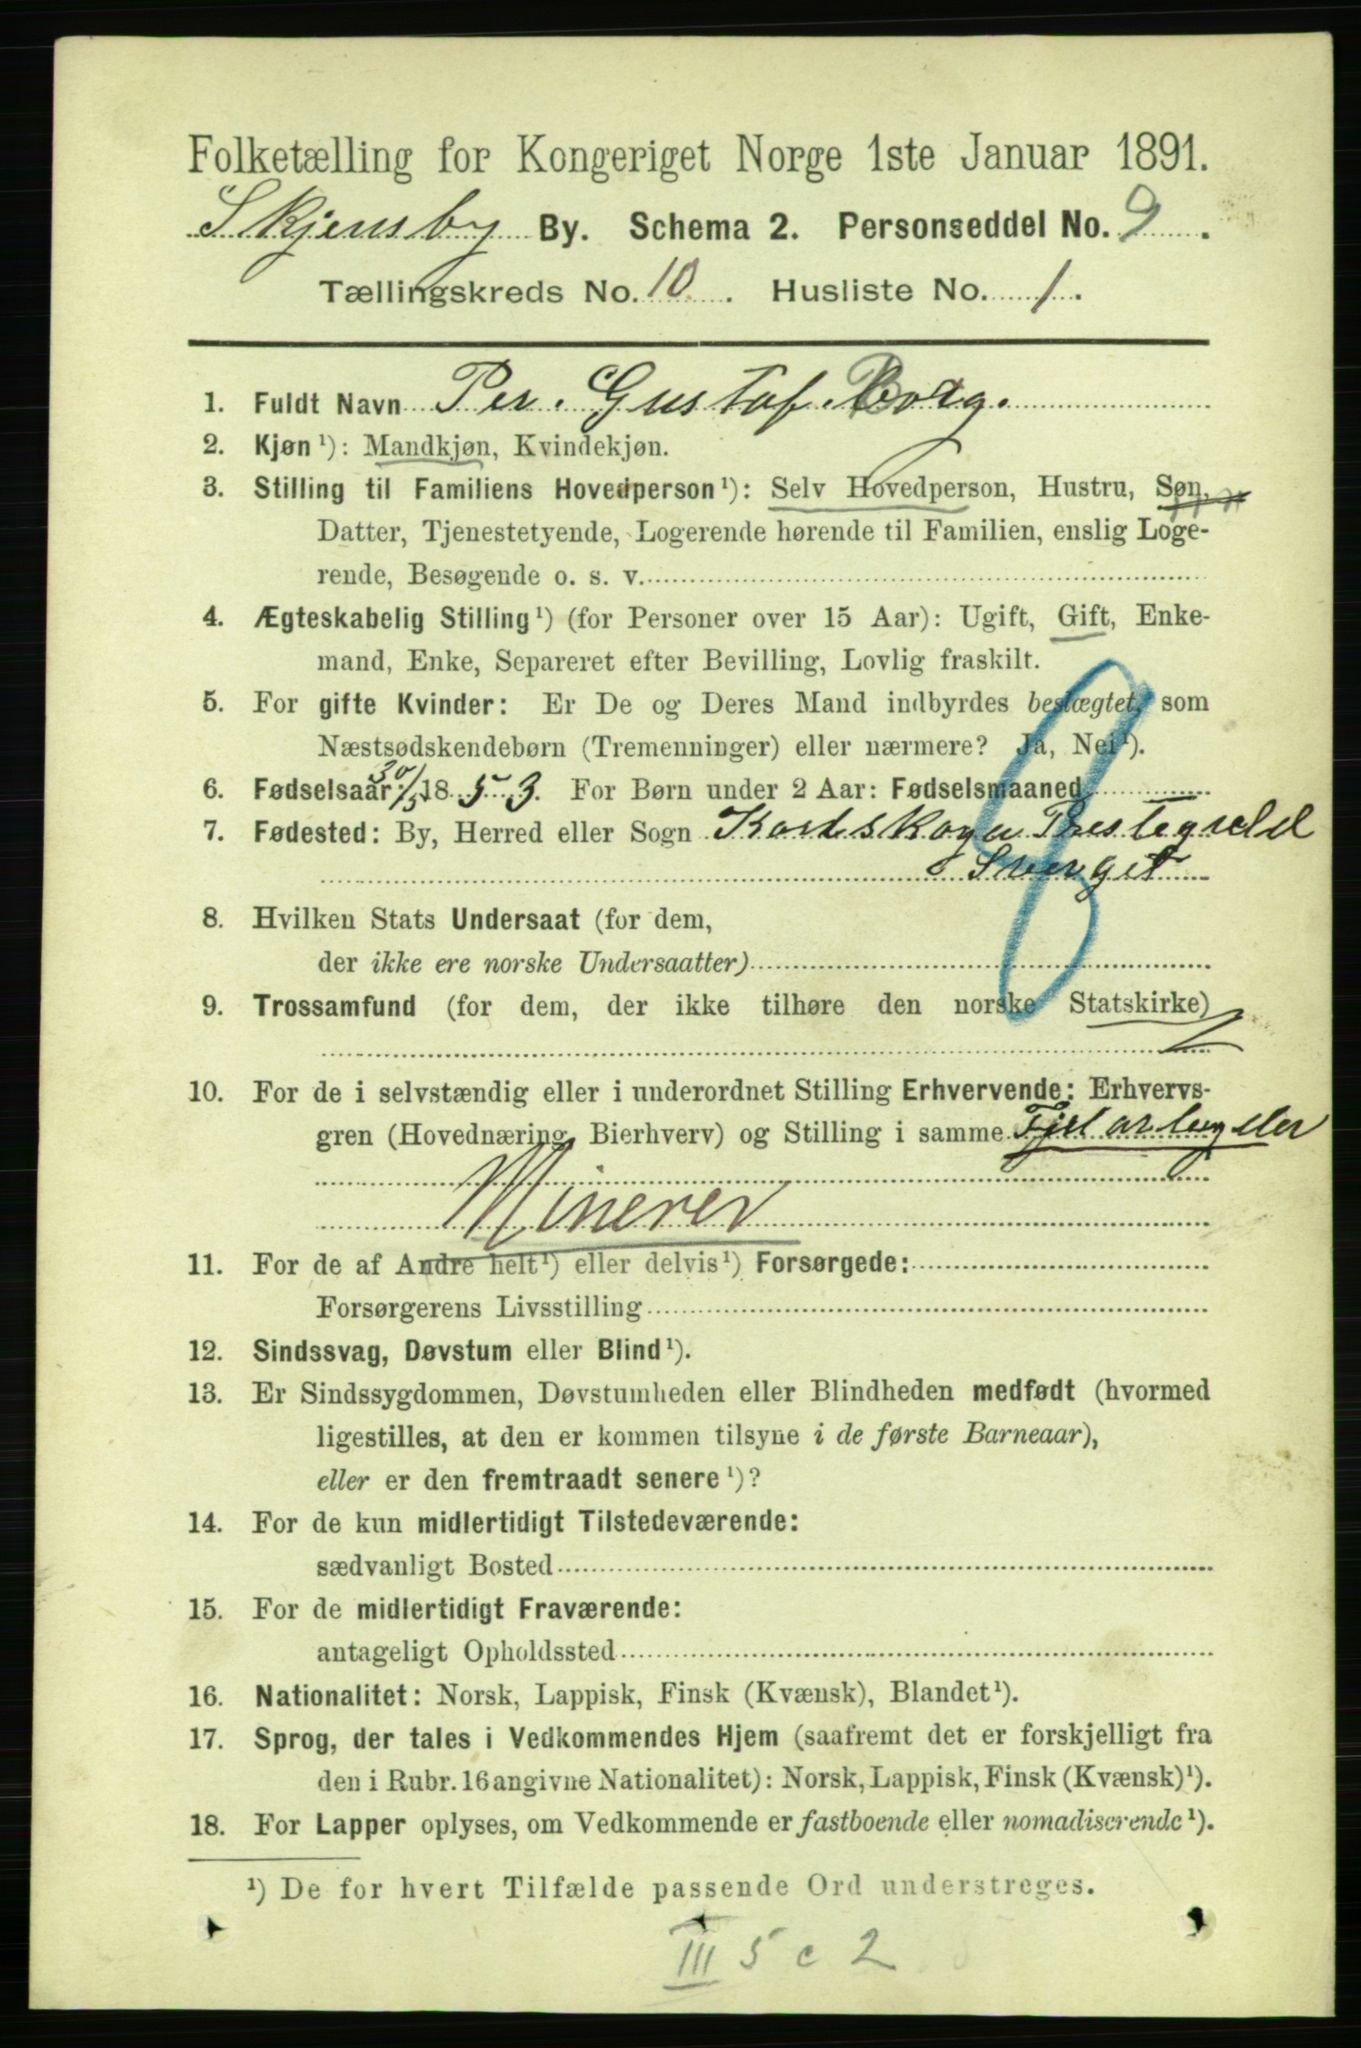 Folketælling for Kongeriget Norge 1ste Januar 1891.
Skjensby By. Schema 2. Personseddel No. 9.
Tællingskreds No. 10. Husliste No. 1.
1. Fuldt Navn Per. Gustaf. Borg.
2. Kjøn ¹): Mandkjøn, Kvindekjøn.
3. Stilling til Familiens Hovedperson ¹): Selv Hovedperson, Hustru, Søn,
Datter, Tjenestetyende, Logerende hørende til Familien, enslig Loge-
rende, Besøgende o. s. v.
4. Ægteskabelig Stilling ¹) (for Personer over 15 Aar): Ugift, Gift, Enke-
mand, Enke, Separeret efter Bevilling, Lovlig fraskilt.
5. For gifte Kvinder: Er De og Deres Mand indbyrdes beslægtet, som
Næstsødskendebørn (Tremenninger) eller nærmere? Ja, Nei ¹).
6. Fødselsaar: 30/5 1853. For Børn under 2 Aar: Fødselsmaaned
7. Fødested: By, Herred eller Sogn Karlskoga Prestegield
Sverget
8. Hvilken Stats Undersaat (for dem,
der ikke ere norske Undersaatter)
9. Trossamfund (for dem, der ikke tilhøre den norske Statskirke)
10. For de i selvstændig eller i underordnet Stilling Erhvervende: Erhvervs-
gren (Hovednæring, Bierhverv) og Stilling i samme Fjelarbeyder
Minerer
11. For de af Andre helt ¹) eller delvis ¹) Forsørgede:
Forsørgerens Livsstilling
12. Sindssvag, Døvstum eller Blind ¹).
13. Er Sindssygdommen, Døvstumheden eller Blindheden medfødt (hvormed
ligestilles, at den er kommen tilsyne i de første Barneaar),
eller er den fremtraadt senere ¹)?
14. For de kun midlertidigt Tilstedeværende:
sædvanligt Bosted
15. For de midlertidigt Fraværende:
antageligt Opholdssted
16. Nationalitet: Norsk, Lappisk, Finsk (Kvænsk), Blandet ¹).
17. Sprog, der tales i Vedkommendes Hjem (saafremt det er forskjelligt fra
den i Rubr. 16 angivne Nationalitet): Norsk, Lappisk, Finsk (Kvænsk) ¹).
18. For Lapper oplyses, om Vedkommende er fastboende eller nomadiserende ¹).
¹) De for hvert Tilfælde passende Ord understreges.
III 5 c 2